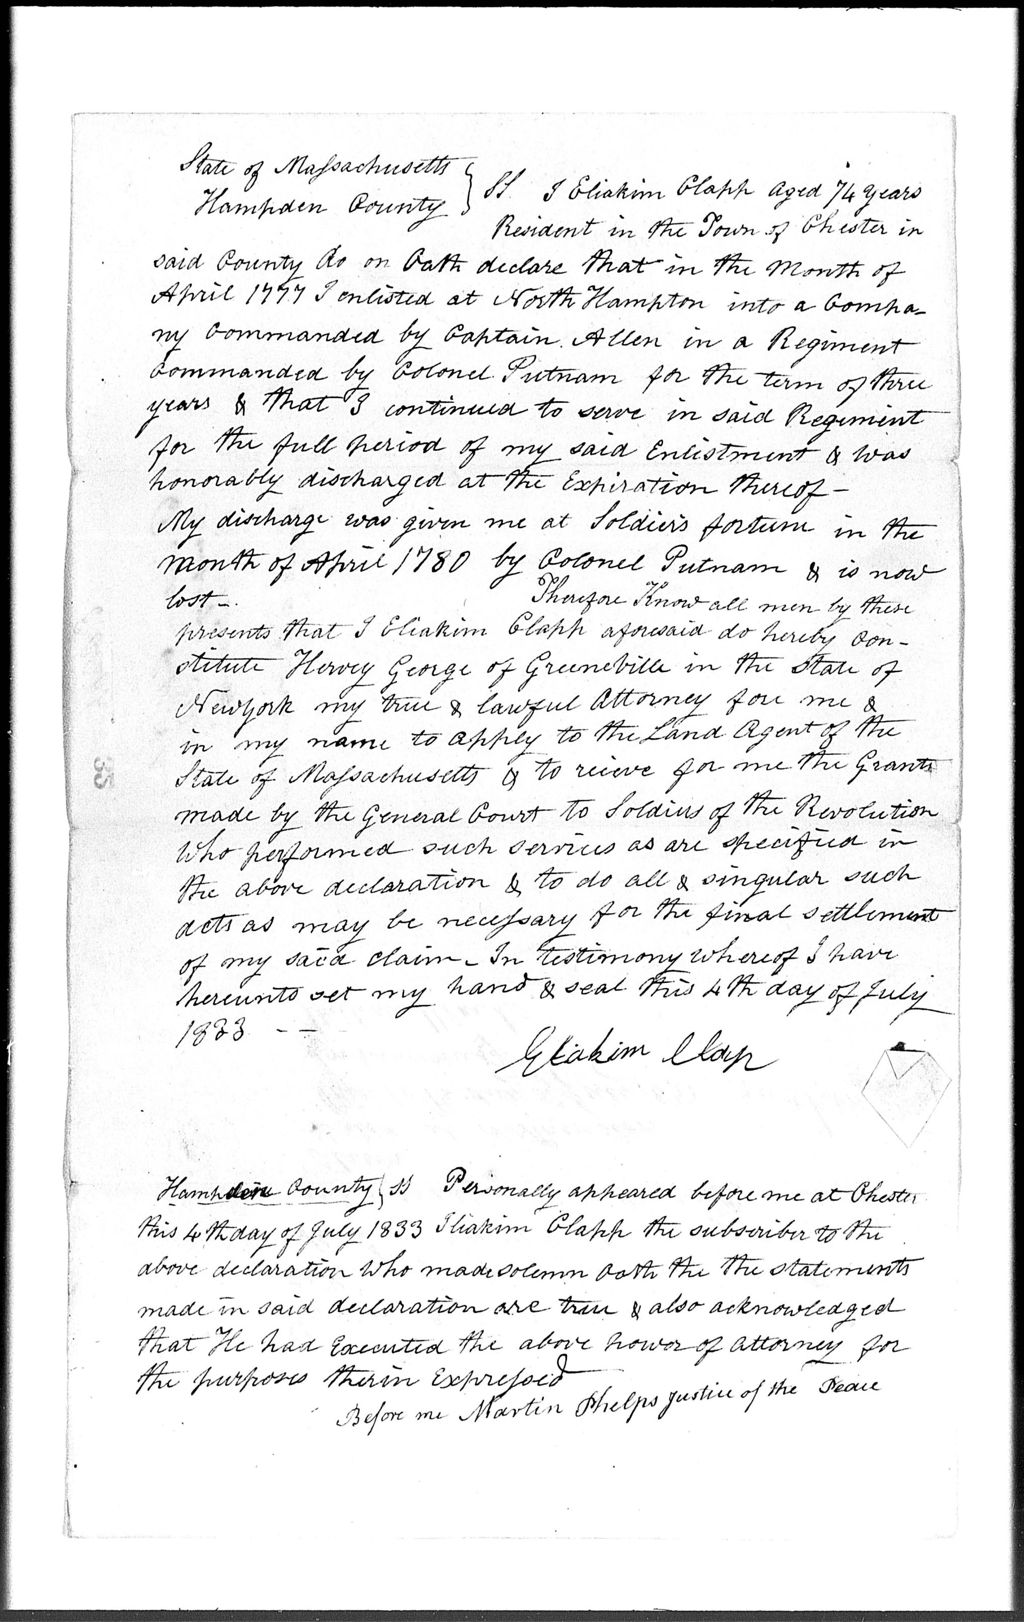 State of Massachusetts } SS. I Eliakim Clapp aged 74 years
Hampden County } Resident in the Town of Chester in
said County do on Oath declare that in the Month of
April 1777 I enlisted at North Hampton into a Compa-
ny Commanded by Captain Allen in a Regiment
Commanded by Colonel Putnam for the term of three
years & that I continued to serve in said Regiment
for the full period of my said Enlistment & was
honorably discharged at the Expiration thereof -
My discharge was given me at Soldiers fortune in the
Month of April 1780 by Colonel Putnam & is now
lost -. Therefore Know all men by these
presents that I Eliakim Clapp aforesaid do hereby Con-
stitute Hervey George of Greeneville in the State of
Newyork my true & lawful Attorney fore me &
in my name to apply to the Land Agent of the
State of Massachusetts & to recieve for me the Grants
made by the General Court to Soldiers of the Revolution
Who performed such services as are specified in
the above declaration & to do all & singular such
acts as may be necessary for the final settlement
of my said claim - In testimony whereof I have
hereunto set my hand & seal this 4th day of July
1833 - -
Eliakim Clap
Hampden County } SS Personally appeared before me at Chester
this 4th day of July 1833 Eliakim Clapp the subscriber to the
above declaration Who made solemn Oath the the statements
made in said declaration are true & also acknowledged
that He had Executed the above power of Attorney for
the purposes therin Expressed
Before me Martin Phelps Justice of the Peace
35